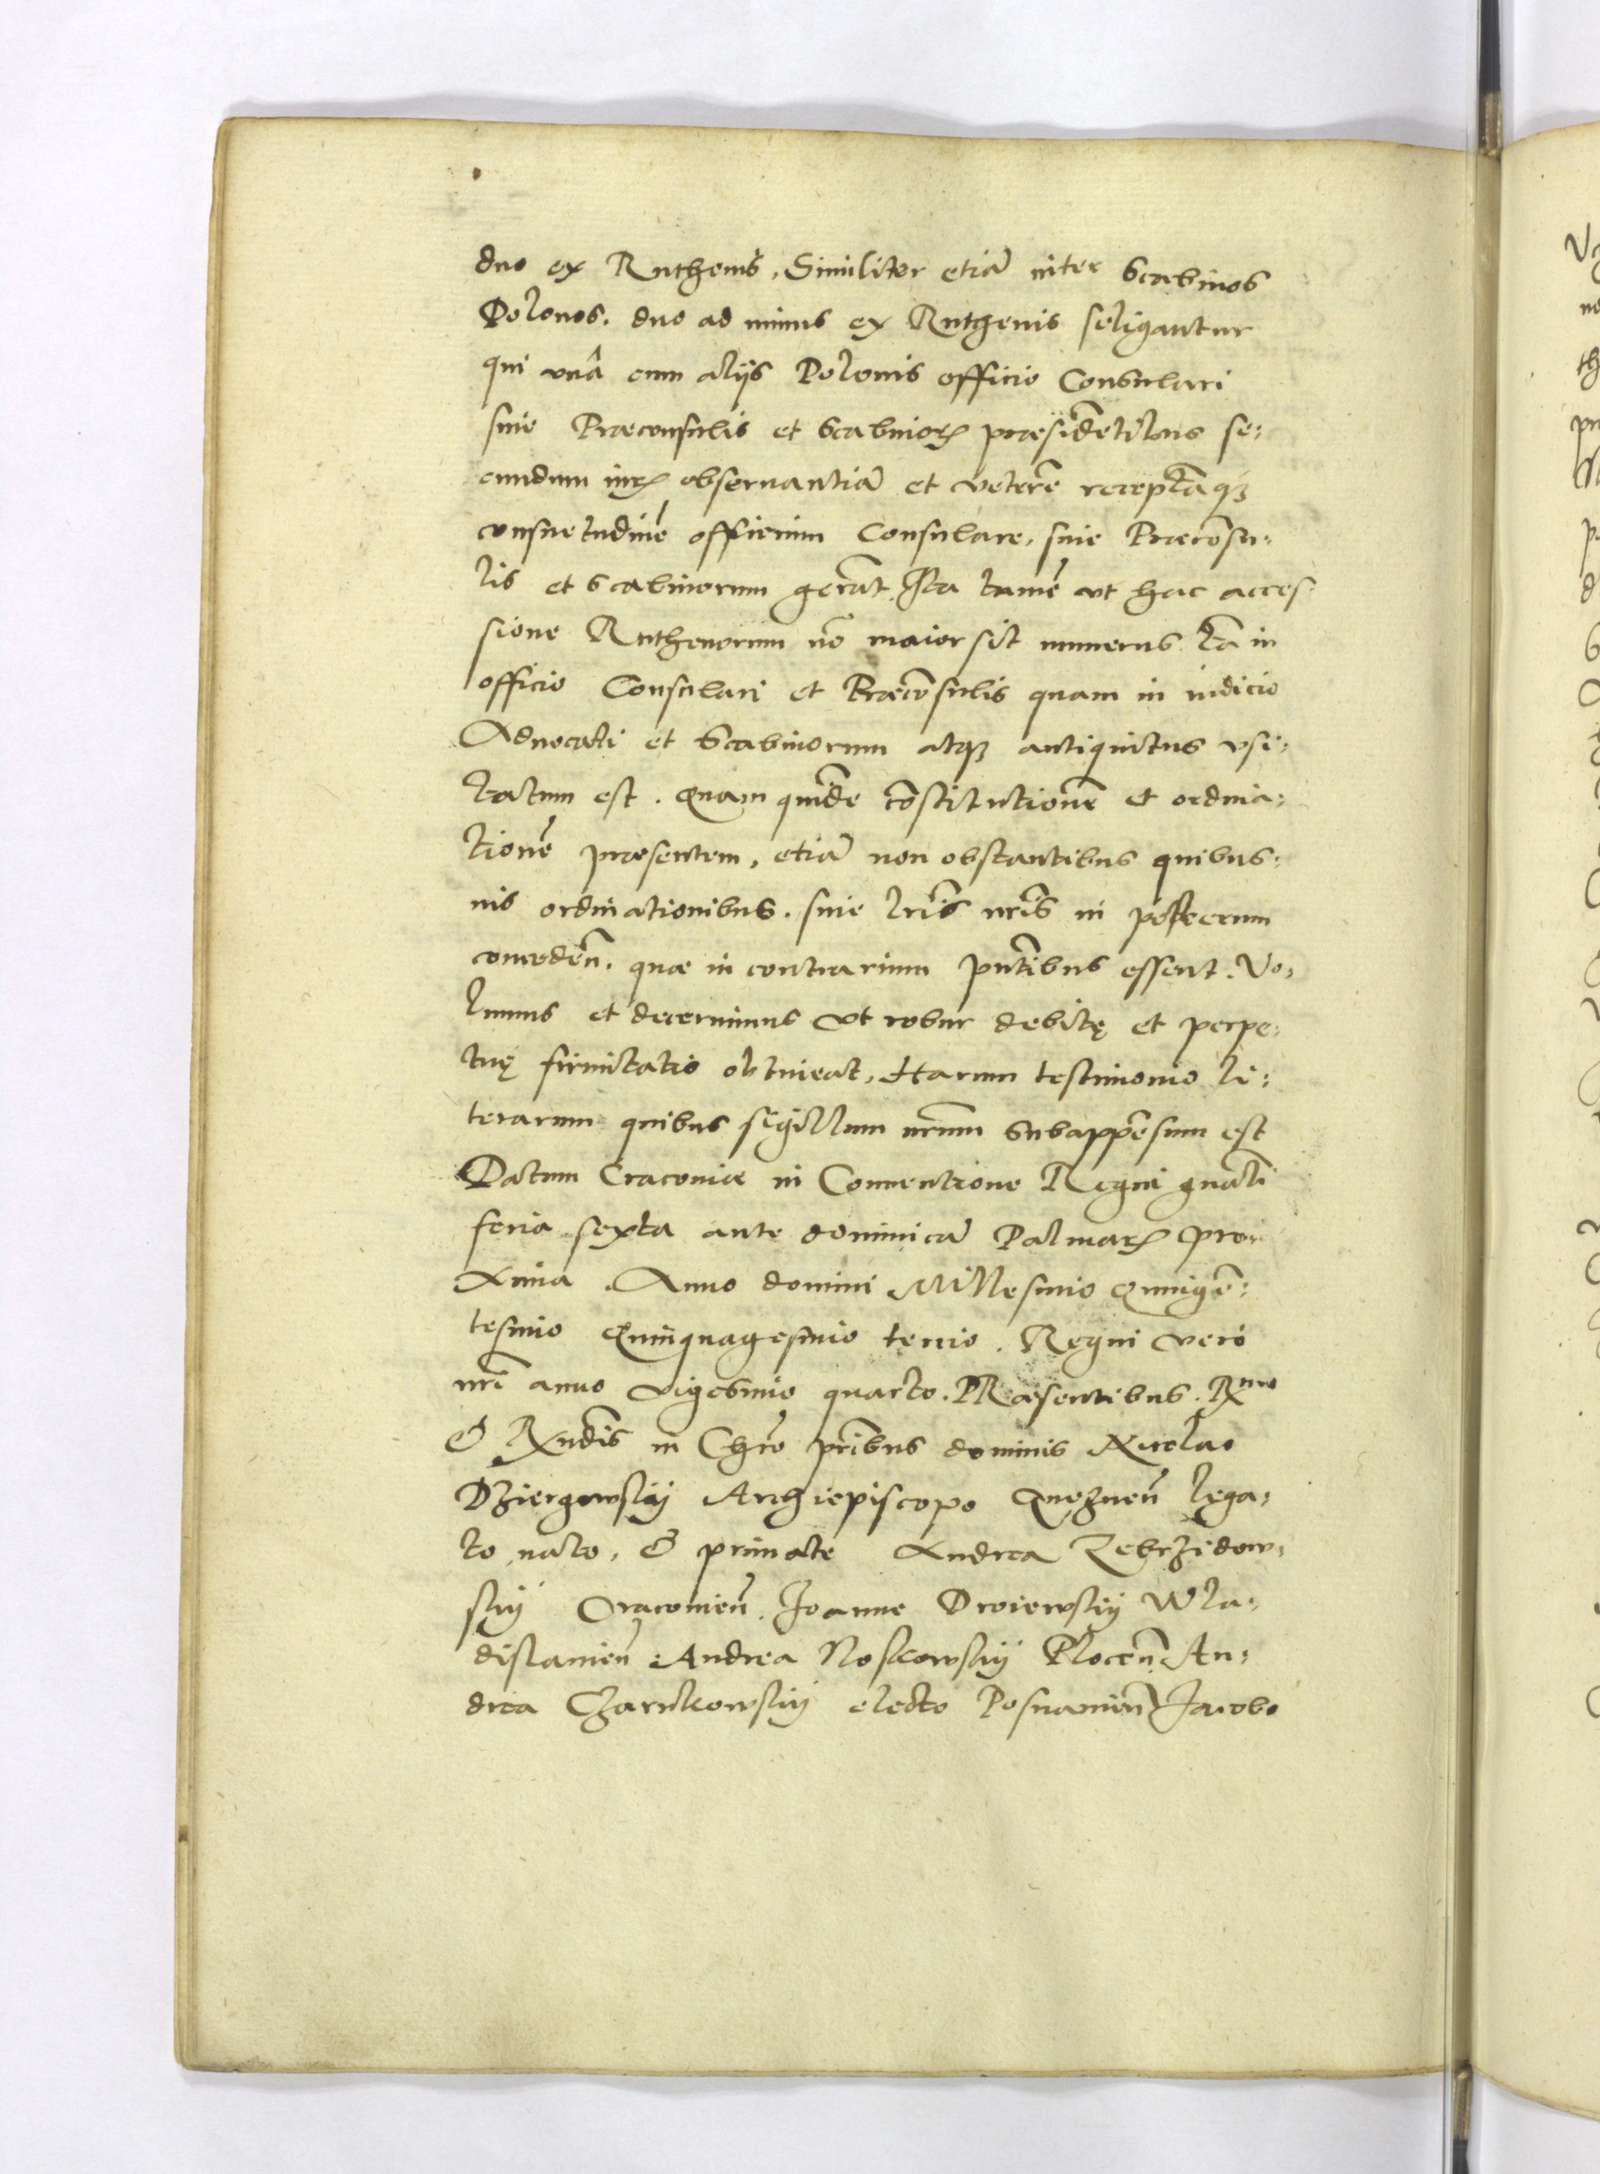 duo ex Ruthenis, Similiter etiã inter Scabinos
Polonos. duo ad minus ex Ruthenis seligantur
qui vnâ cum alijs Polonis officio Consulari
siue Præconsulis et Scabinorꝝ præsidẽtibus se=
cundum iurꝭ obseruantiã et veterẽ receptãqꝫ
consuetudinẽ officium Consulare, siue Præcõsu=
lis et Scabinorum gerãt. Ita tamẽ vt hac acces=
sione Ruthenorum nõ maior sit numerus tã in
officio Consulari et Præcõsulis quam in iudicio
Aduocati et Scabinorum atqꝫ antiquitus vsi=
tatum est. Quam quidẽ cõstitutionẽ et ordina=
tionẽ præsentem, etiã non obstantibus quibus=
uis ordinationibus. siue lrĩs nrĩs in
concedẽn. quæ in contrarium pntĩbus essent. Vo=
lumus et decernimus vt robur debitę et perpe=
tuę firmitatis obtineat, Harum testimonio li=
terarum quibus sigillum nrũm Subappẽsum est
Datum Cracoviæ in Conuentione Regni gnãli
feria sexta ante dominicã Palmarꝝ pro=
xima. Anno domini Millesimo Quingẽ=
tesimo Quinquagesimo tertio. Regni vero
nrĩ anno vigesimo quarto. PRæsentibus. Rmo
& Rndĩs in Chrõ prĩbus dominis Nicolao
Dziergowskij Archiepiscopo Gneznen̄ lega=
to nato, & primate Andrea Zebrzidow=
skij Cracouien̄. Joanne Droiewskij Wla=
dislauien̄. Andrea Noskowskij Plocen̄ An=
drea Czarnkowskij electo Posnanien̄ Jacobo